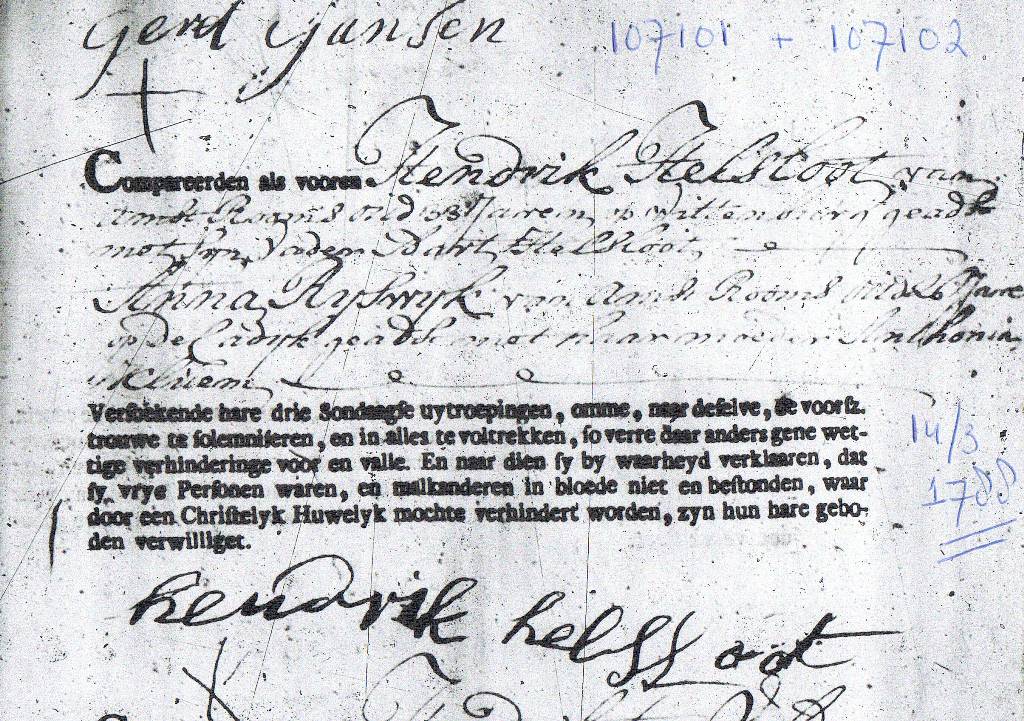 Gerd Jansen
107101 + 107102
Compareerden als vooren Hendrik Helsloot van
Amst Rooms oud 38 Jaaren op Witten geadst
met syn Vader Bart Helsloot
Anna Ryswyk van Amst Rooms oud 26 Jaare
op de Cadyk geadst met haar moeder Anthonia
Versoekende hare drie Sondaagse uytroepingen, omme, naar deselve, de voorsz.
trouwe te solemniseren, en in alles te voltrekken, so verre daar anders gene wet-
tige verhinderinge voor en valle. En naar dien sy by waarheyd verklaaren, dat
sy vrye Personen waren, en malkanderen in bloede niet en bestonden, waar
door een Christelyk Huwelyk mochte verhindert worden, zyn hun hare gebo-
den verwilliget.
14/3
1788
hendrik helsloot